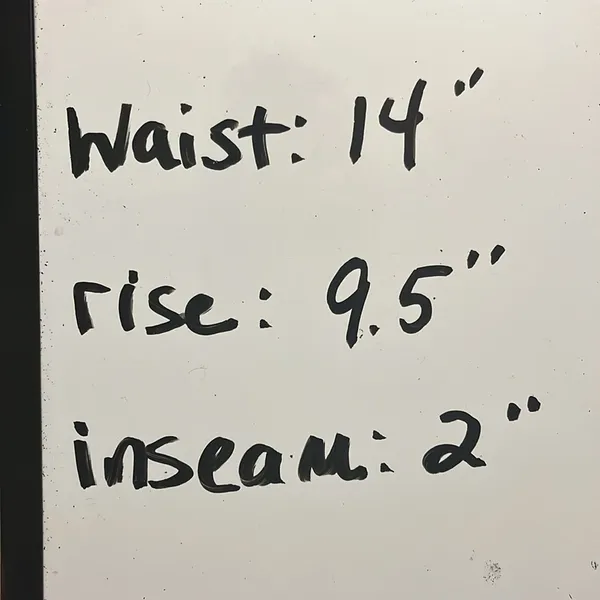 Waist: 14"
rise: 9.5"
inseam: 2"